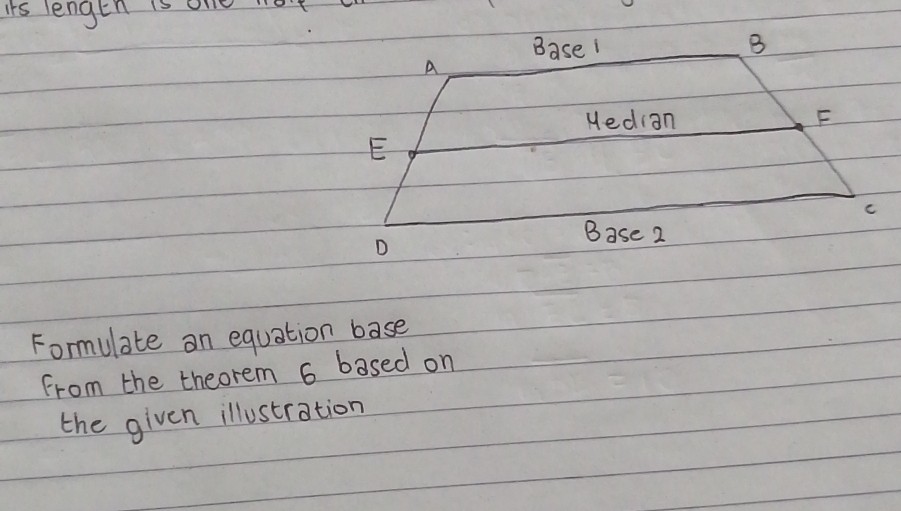 its length is one
Base 1
A
B
Median
E
F
D
Base 2
C
Formulate an equation base
from the theorem 6 based on
the given illustration